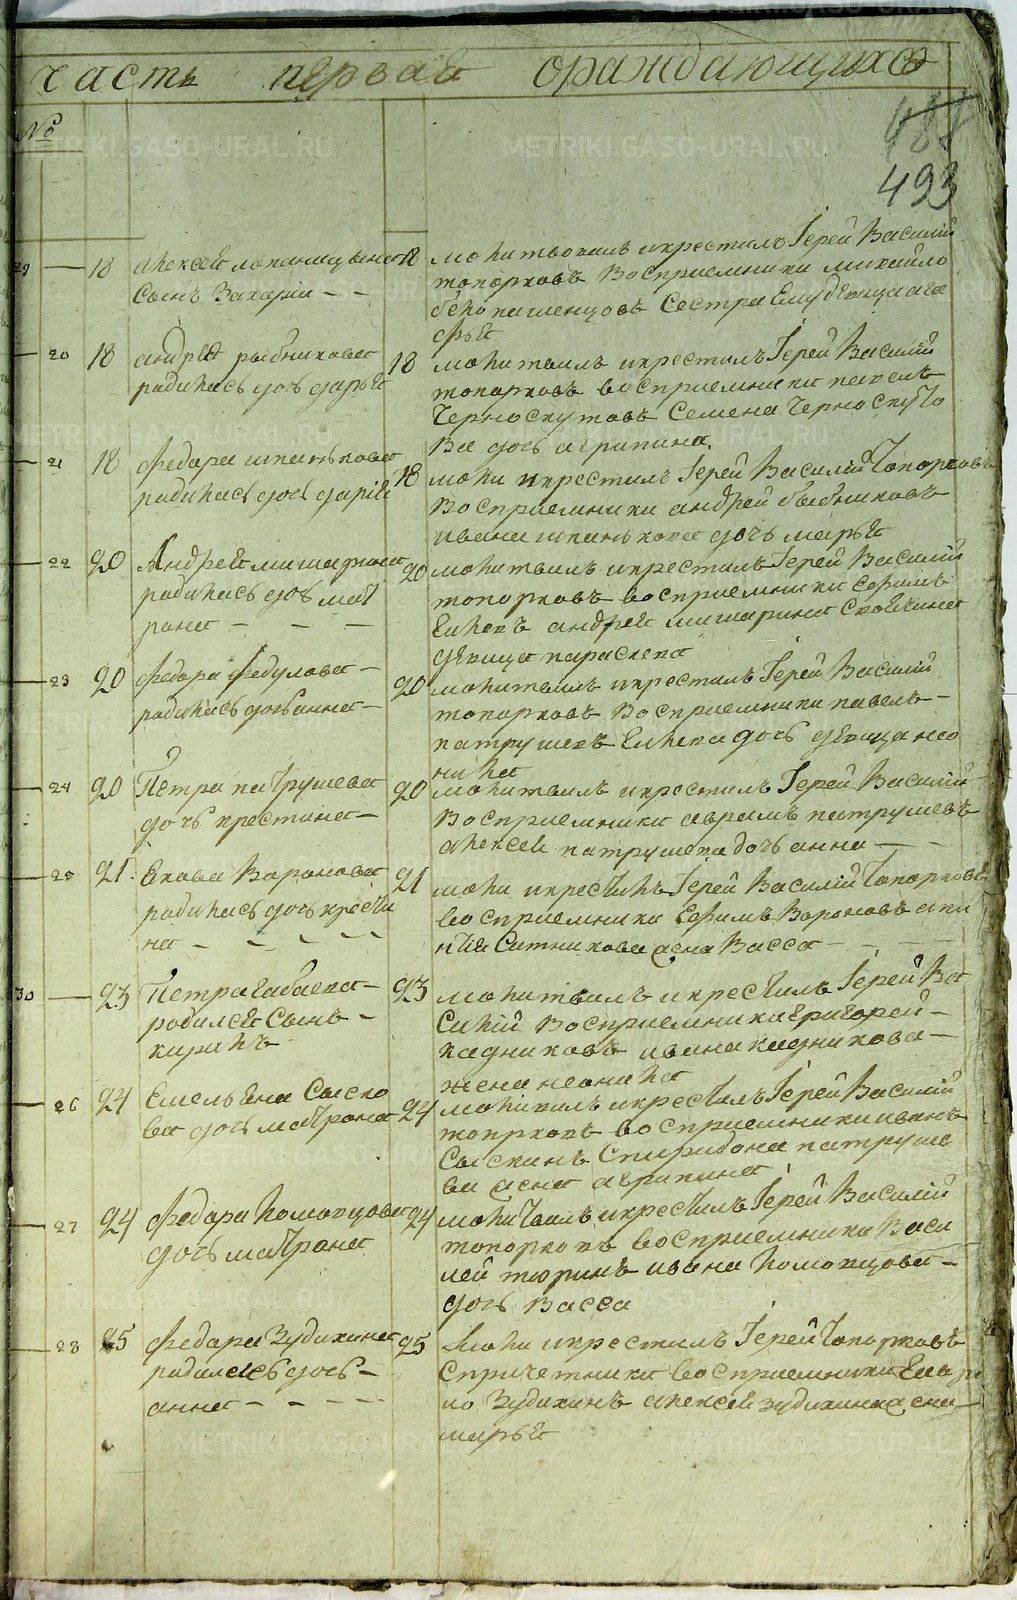 часть первая ораждающихся
№
488
493
29 18 Алексея
сынъ Захарiи
18 молитвовалъ икрестилъ Iерей Василiй
топорковъ Восприемники михайло
Сестра Ему девица ага
фья
20 18 андрея рыбникова
родилась дочь дарья
18 молитвилъ икрестилъ Iерей Василiй
топорковъ восприемники павелъ
Черноскутовъ Семена Черноскуто
ва дочь агрипина
21 18 Федора шпанькова
родилась дочь дарiя
18 моли икрестилъ Iерей Василiй Топорковъ
Восприемники андрей
ивана шпанькова дочь марья
22 20 Андрея мишарина
родилась дочь мат
рона
20 молитвилъ икрестилъ Iерей Василiй
топорковъ восприемники Ефимъ
андрея мишарина
девица параскева
23 20 Федора Федулова
родилась дочь анна
20 молитвилъ икрестилъ Iерей Василiй
топорковъ Восприемники павелъ
патрушевъ дочь девица нео
нила
24 20 Петра патрушева
дочь крестина
20 молитвилъ икрестилъ Iерей Василiй
Восприемники аврамъ патрушевъ
алексея патрушева дочь анна
25 21 Екова Воронова
родилась дочь крести
на
21 моли икрестилъ Iерей Василiй Топорковъ
восприемники Ефимъ Вороновъ
Ситникова жена Васса
30 23 Петра бабаева
родился Сынъ
кирилъ
23 молитвилъ икрестилъ Iерей Ва
силiй Восприемники григорей
кадниковъ ивана кадникова
жена неонила
26 24 Емельяна Сыско
ва дочь матрона
24 икрестилъ Iерей Василiй
топорковъ восприемники иванъ
Сыскинъ Спиридона патруше
ва жена агрипина
27 24 Федора Коловцова
дочь матрона
24 молитвилъ икрестилъ Iерей Василiй
топорковъ восприемники Васи
лей тюринъ ивана Коловцова
дочь Васса
28 25 Федора Зудихина
родилась дочь
анна
25 Моли икрестилъ Iерей Топорковъ
Спричетники восприемники
Зудихинъ алексея зудихина жена
марья